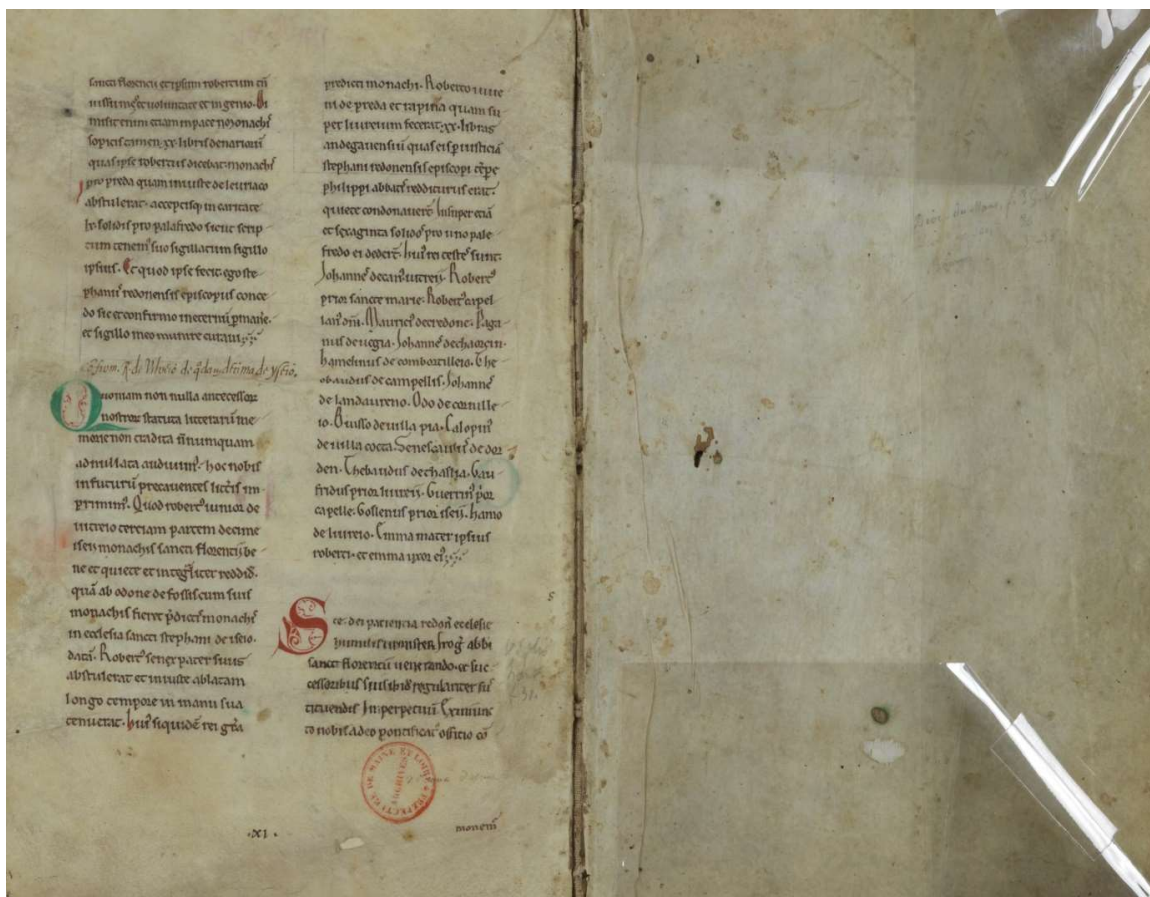 sancti florencii et ipsum robertum cū
nissimꝰ et voluntate et ingenio. Di
misit enim etiam in pace n̄o monach̄
sopicis tamen .xx. libris denarioꝝ
quas ipse robertus dicebat monach̄
pro preda quam iniuste de leuriaco
abstulerat. acceptisq; in caritate
lx. solidis pro palafredo sicut scrip
tum tenemꝰ suo sigillatum sigillo
ipsius. Et quod ipse fecit. ego ste
phanus redonensis episcopus conce
do sic et confirmo in eternū pmane.
et sigillo meo munire curavi
Quoniam non nulla antecessoꝝ
nostroꝝ statuta litterarū me
morie non tradita n̄ numquam
adnullata audiuimꝰ. hoc nobis
in futurū precauentes litt̄is im
primimꝰ. Quod robertꝰ iunior de
uitreio terciam partem decime
iseii monachis sancti florencii be
ne et quiete et integliter reddid̄.
quā ab odone de fossis cum suis
monachis fieret p̄dictis monach̄
in ecclesia sancti stephani de iseio.
datā. Robertꝰ senex pater suus
abstulerat et iniuste ablatam
longo tempore in manu sua
tenuerat. huiꝰ siquidē rei gr̄a
predicti monachi. Roberto iuue
ni de preda et rapina quam su
per liureium fecerat .xx. libras
andegauensiū quas eis p iusticiā
stephani redonensis episcopi tēpe
philippi abbatis redditurus erat.
quiete condonauer̄t. Insuper etiā
et sexaginta solidos pro uno pale
fredo ei deder̄t. huiꝰ rei testes sunt.
Johannes decanꝰ uitreii. Robertꝰ
prior sancte marie. Robertꝰ capel
lanꝰ dn̄i. Mauriciꝰ de redone. Paga
nus de uegia. Johannes de chaorcin.
hamelinus de combortilleio. The
obaudus de campellis. Johannes
de landaureno. Odo de cornille
io. Gruisso de uilla pia. Calopinꝰ
de uilla cocta. Senescaus de dor
den. Thebaudus de chastia. Gau
fridus prior liureii. Guerrinꝰ p̄or
capelle. Goslenus prior iseii. hamo
de liureio. Emma mater ipsius
roberti. et emma uxor eiꝰ
Ste. dei paciencia redon̄ ecclesie
humilis minister. frog̃ abbi
sancti florencii uenerando. et suc
cessoribus suis ibid̄ regulariter sub
stituendis Inperpetuū. Ex iniunc
to nobis adeo pontificat officio cō
.XI.
monem̄
PREFECTURE DE MAINE ET LOIRE
ARCHIVES